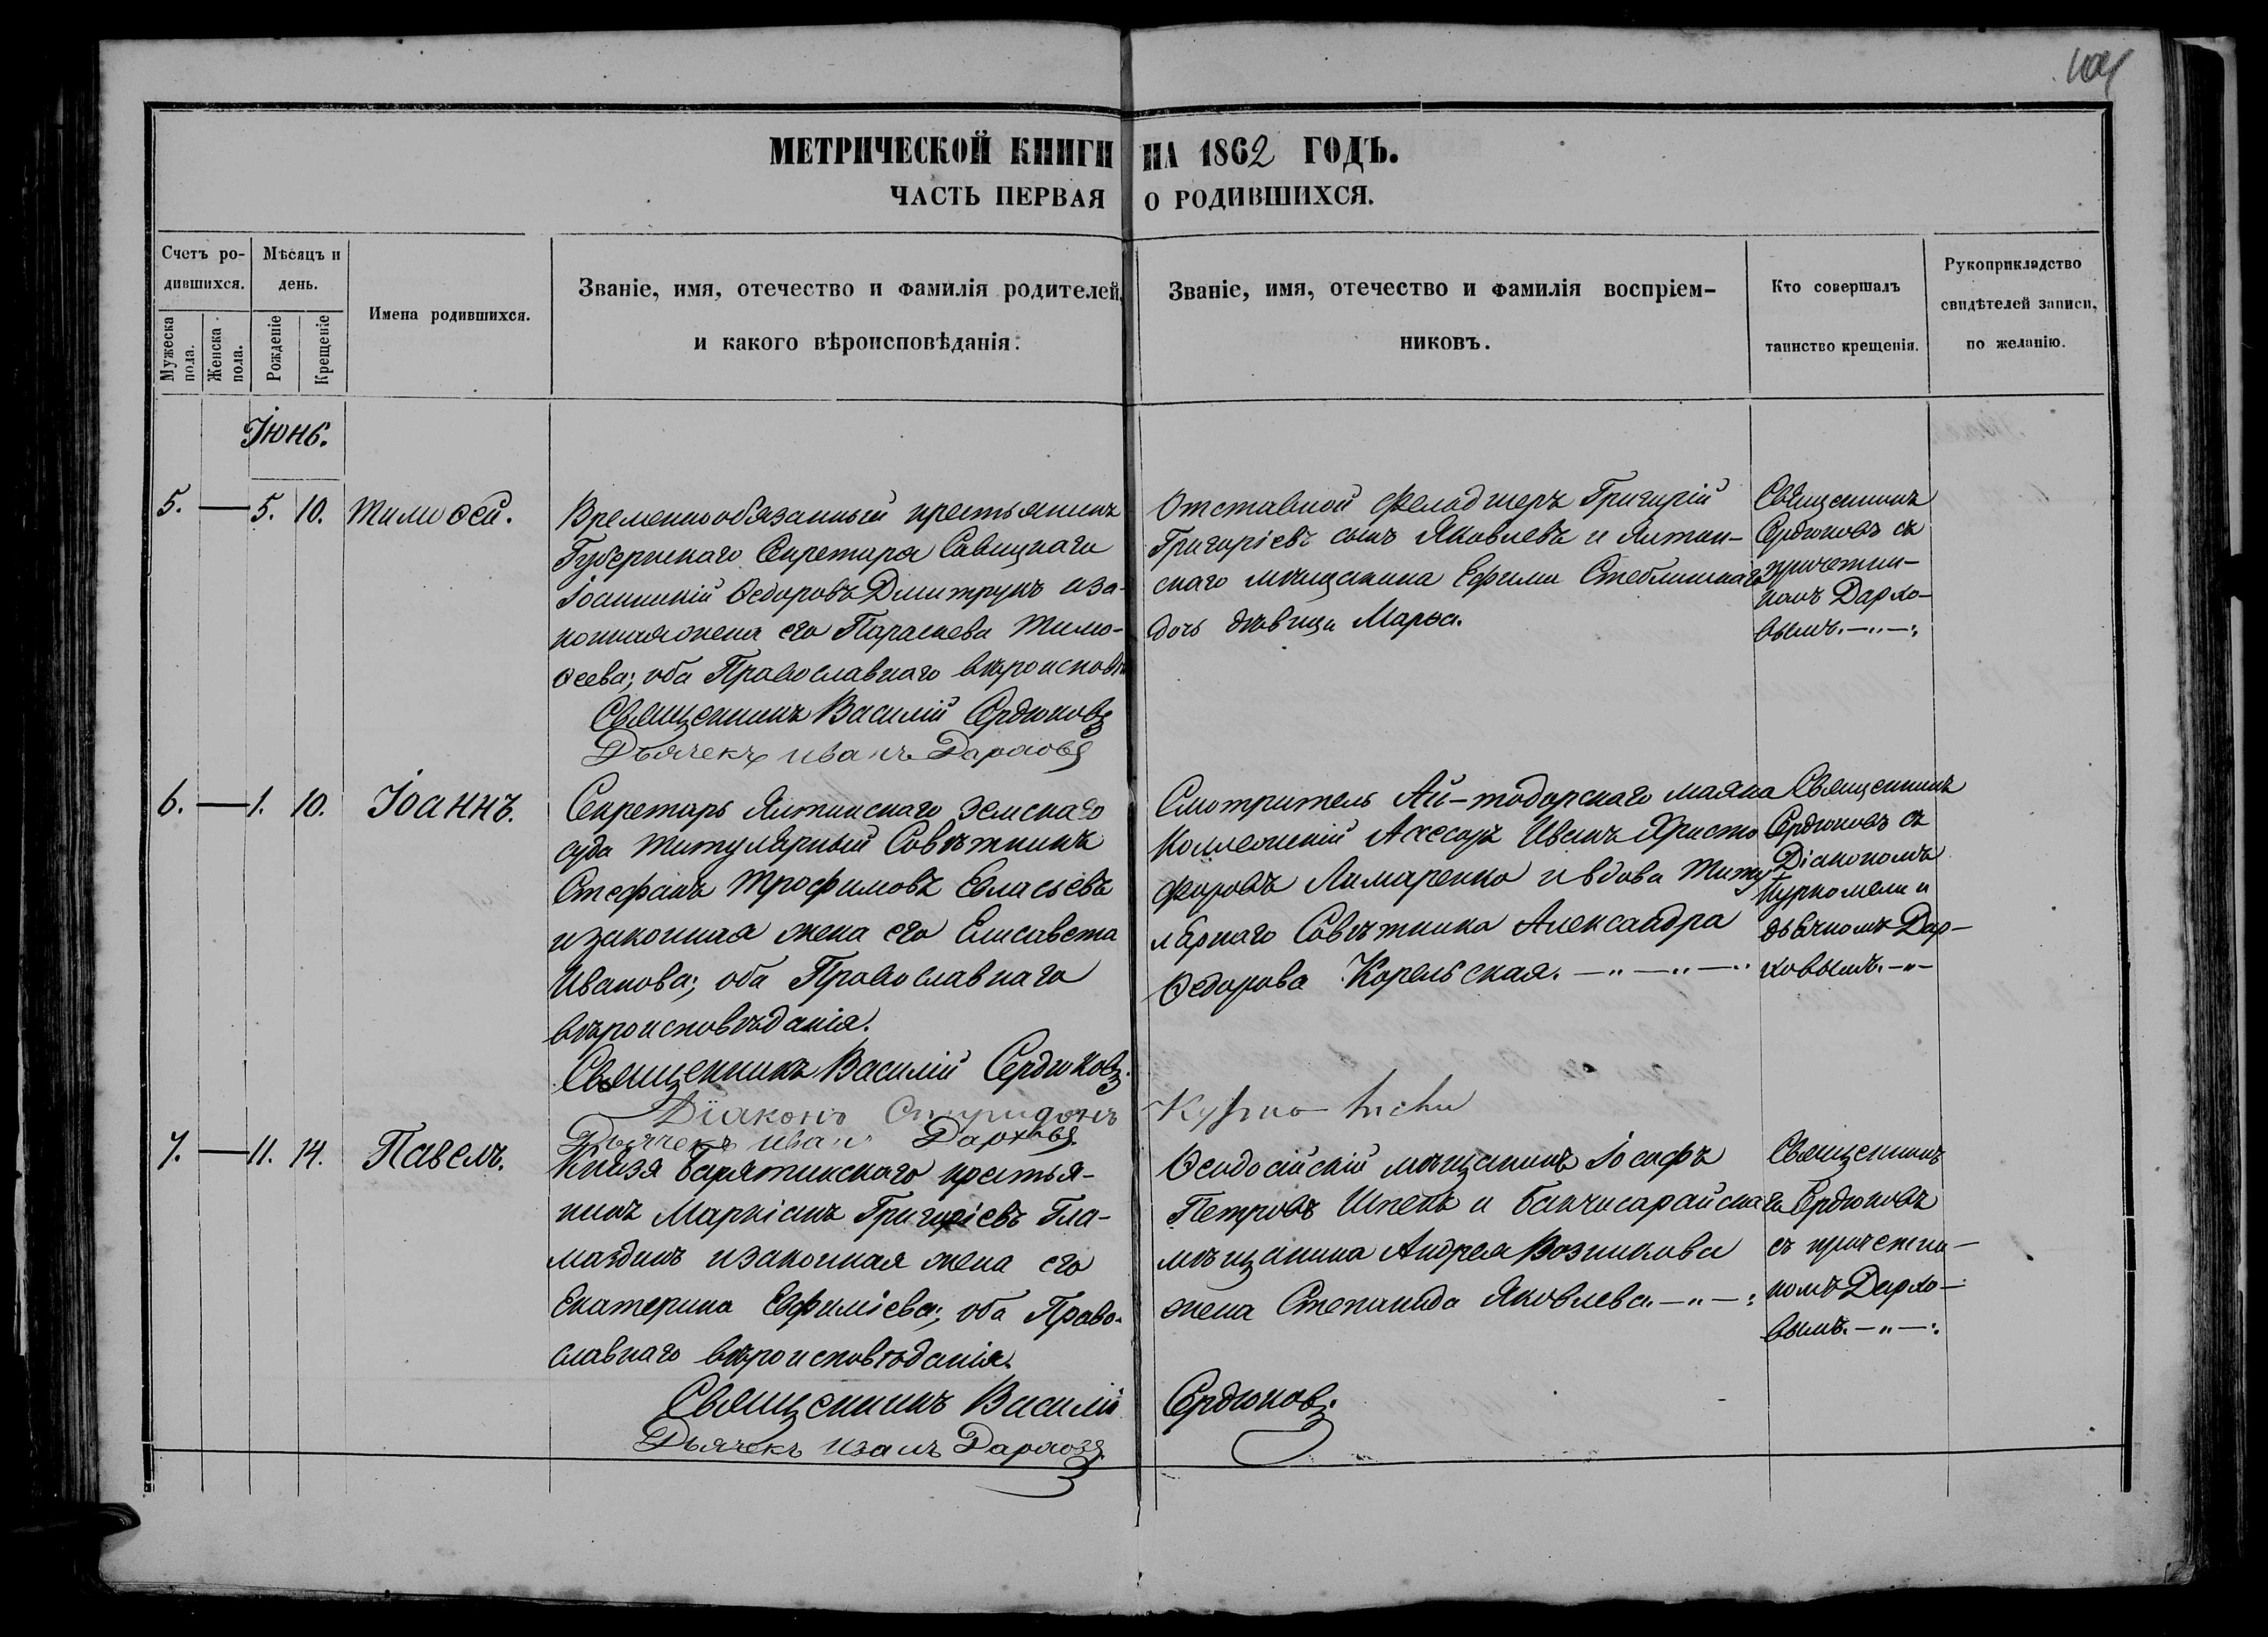 МЕТРИЧЕСКОЙ КНИГИ НА 1862 ГОДЪ.
ЧАСТЬ ПЕРВАЯ О РОДИВШИХСЯ.
Счетъ ро-
дившихся.
Мужеска
пола.
Женска
пола.
Мѣсяцъ и
день.
Рожденіе
Крещеніе
Имена родившихся.
Званіе, имя, отечество и фамилія родителей,
и какого вѣроисповѣданія.
Званіе, имя, отечество и фамилія воспріем-
никовъ.
Кто совершалъ
таинство крещенія.
Рукоприкладство
свидѣтелей записи,
по желанію.
Іюнь.
5. — 5. 10. Тимоѳей.
Временнообязанный крестьянинъ
Губернскаго Секретаря Савицкаго
Іоанникій Ѳедоровъ Дмитрукъ и за-
конная жена его Параскева Тимо-
ѳеева; оба Православнаго вѣроисповѣ
Священникъ Василій Сердюковъ
Дьячекъ Иванъ Дарховъ
Отставной Фельдшеръ Григорій
Григоріевъ сынъ Яковлевъ и Ялтин-
скаго мѣщанина Ефима Стеблинскаго
дочь дѣвица Марья.
Священникъ
Сердюковъ съ
причетни-
комъ Дархо-
вымъ.—"—:
6. — 1. 10. Іоаннъ.
Секретарь Ялтинскаго Земскаго
суда Титулярный Совѣтникъ
Стефанъ Трофимовъ Евласьевъ
и законная жена его Елисавета
Иванова; оба Православнаго
вѣроисповѣданія.
Священникъ Василій Сердюковъ.
Діаконъ Спиридонъ
Дьячекъ Иванъ Дарховъ
Смотритель Ай-тодорскаго маяка
Коллежскій Ассесоръ Иванъ Христо
форовъ Лимаренко и вдова Титу
лярнаго Совѣтника Александра
Ѳедорова Корельская.—"—"—"
Священникъ
Сердюковъ съ
Діакономъ
и
дьячкомъ Дар-
ховымъ.—"—
7. — 11. 14. Павелъ.
Князя Барятинскаго крестья-
нинъ Маркіанъ Григоріевъ Гла-
маздинъ и законная жена его
Екатерина Евфиміева; оба Право-
славнаго вѣроисповѣданія.
Священникъ Василій Сердюковъ.
Дьячекъ Иванъ Дарховъ
Ѳеодосійскій мѣщанинъ Іосифъ
Петровъ Шпекъ и Бакчисарайскаго
мѣщанина Андрея Возникова
жена Степанида Яковлева.—"—:
Священникъ
Сердюковъ
съ причетни-
комъ Дархо-
вымъ.—"—: